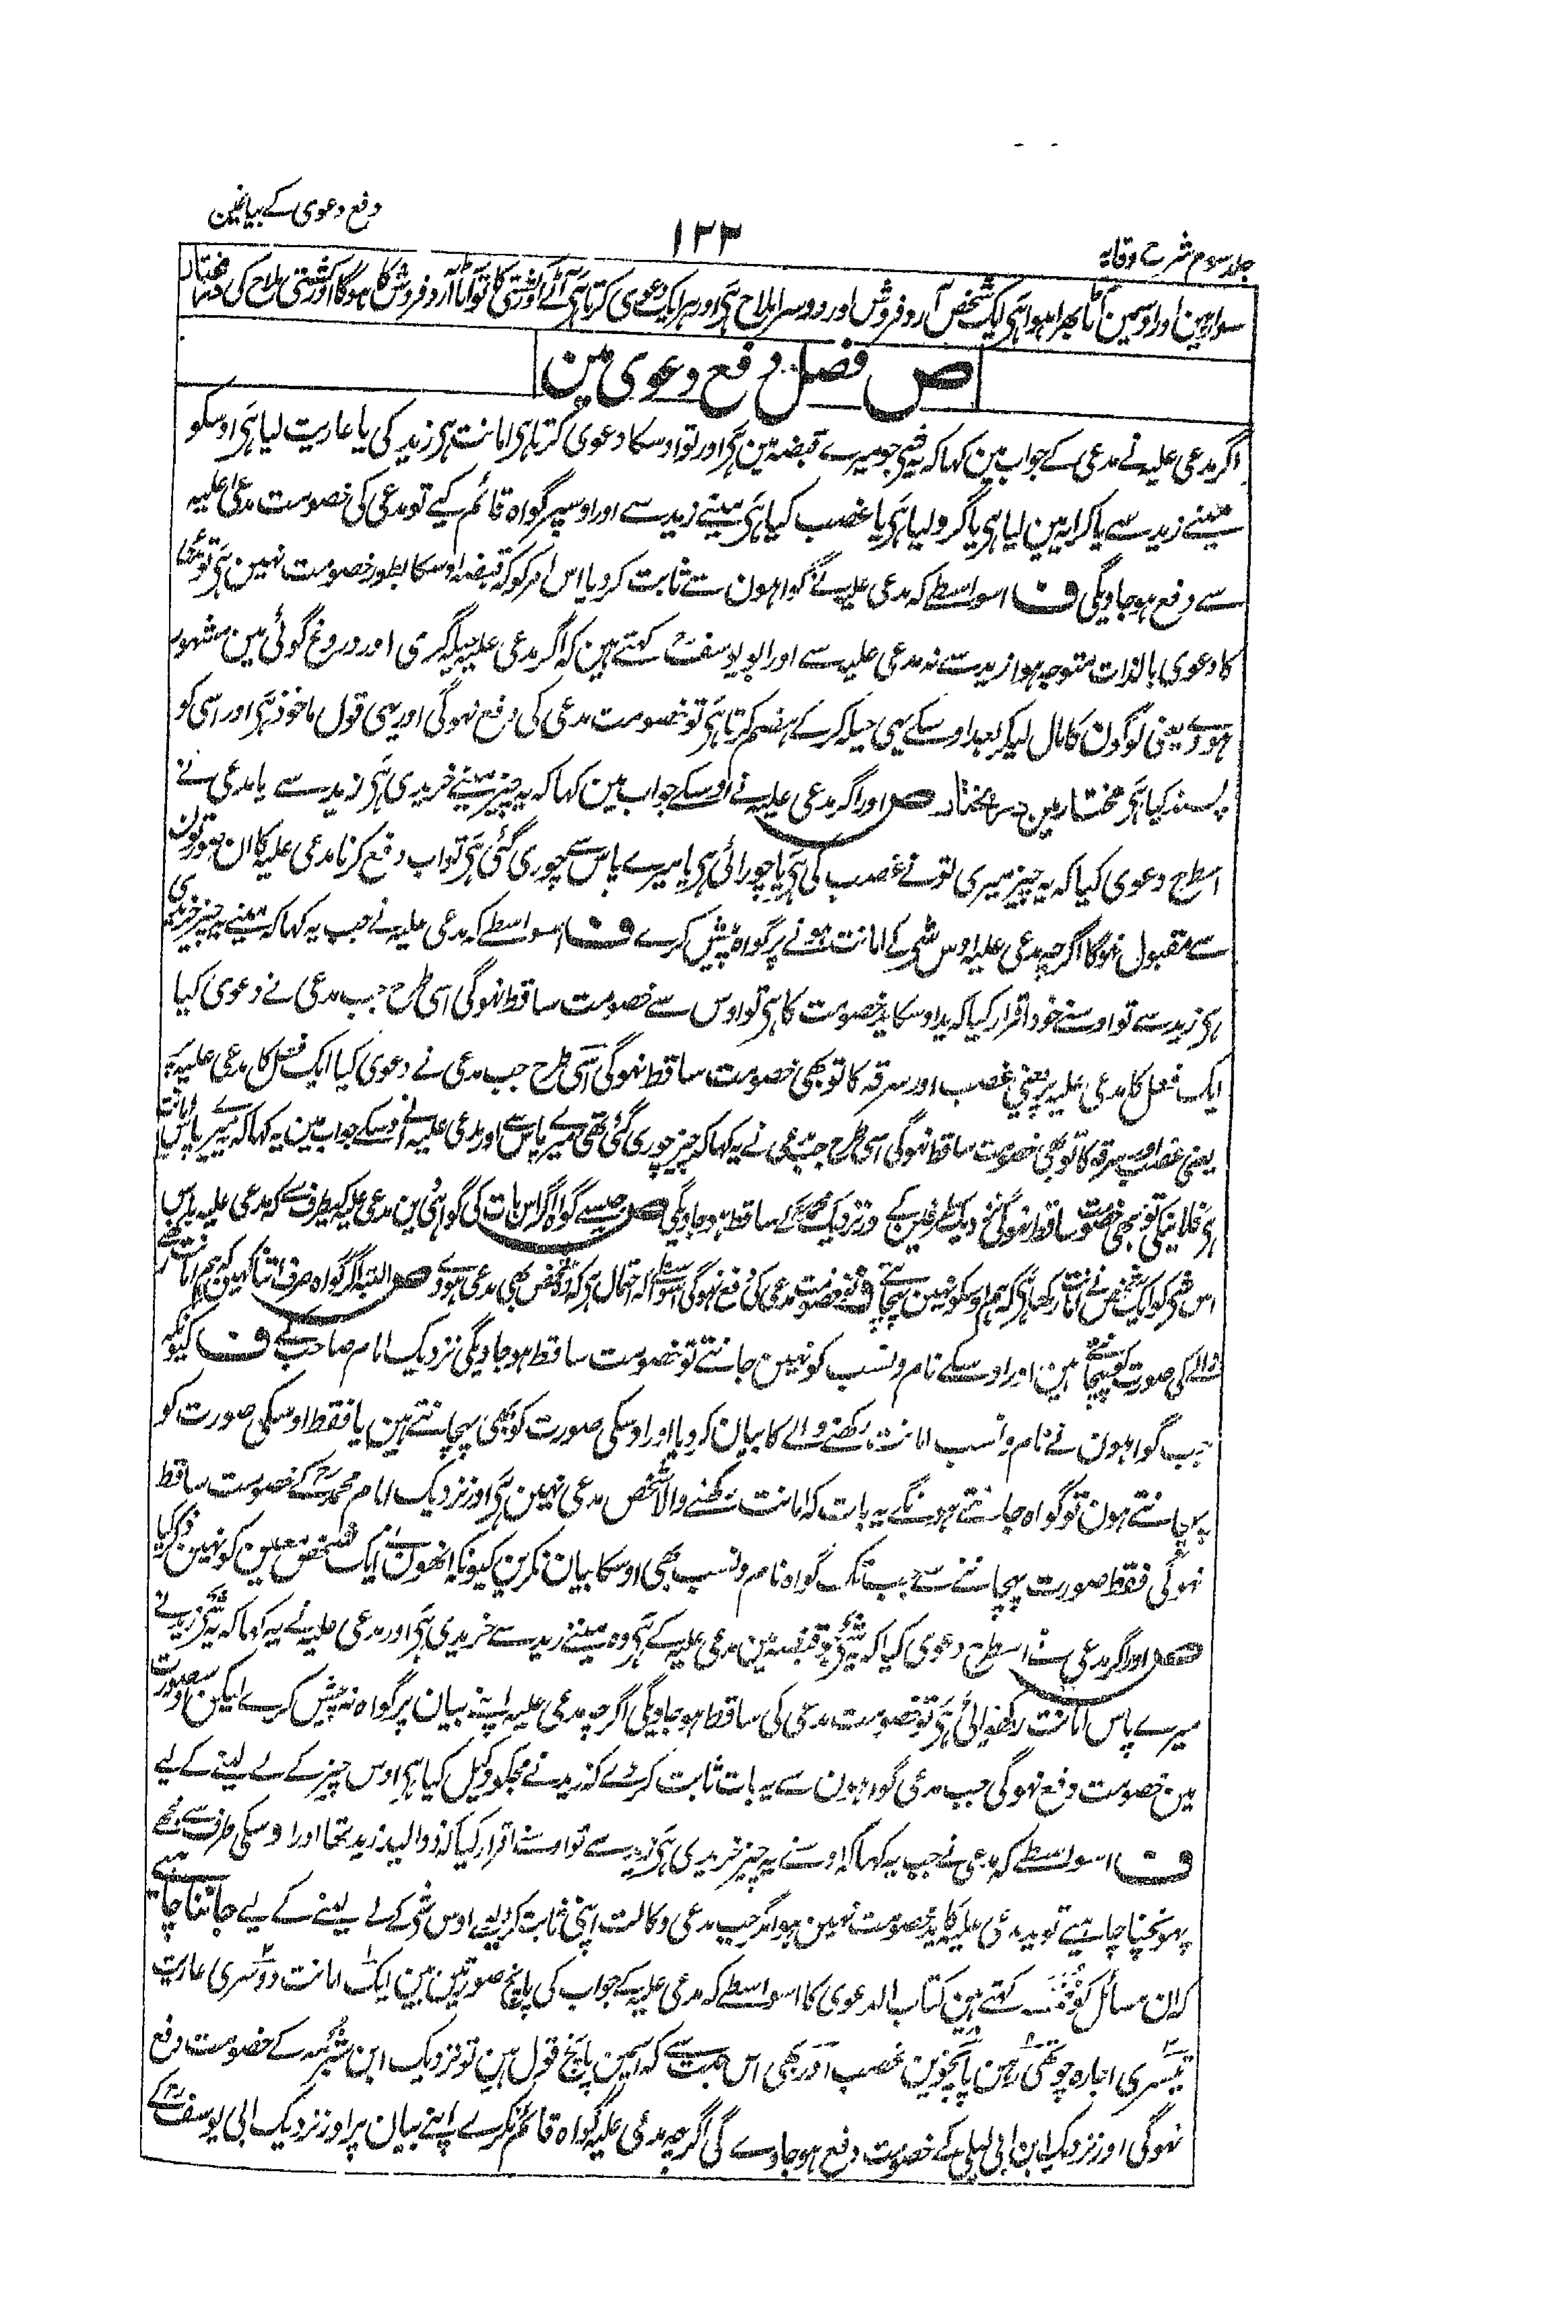 جلد سوم شرح وقایہ
۱۳۳
دفع دعوی کے بیانمین
سوار ہین اور اوسمین آٹا بھرا ہوا ہی ایک شخص آرد فروش اور دوسرا ملاح ہی اور ہر ایک دعوی کرتا ہی آٹے اور کشتی کا تو آٹا آرد فروش کا ہوگا اور کشتی ملاح کی
ص فصل دفع دعوی مین
اگر مدعی علیہ نے مدعی کے جواب مین کہا کہ یہ شی جو میرے قبضہ مین ہی اور تو اوسکا دعوی کرتا ہی امانت ہی زید کی یا عاریت لیا ہی اوسکو
مینے زید سے یا کرایہ مین لیا ہی یا گرو لیا ہی یا غصب کیا ہی مینے زید سے اور اوسپر گواہ قائم کیے تو مدعی کی خصومت مدعی علیہ
سے دفع ہو جاویگی ف اسواسطے کہ مدعی علیہ نے گواہون سے ثابت کردیا اس امر کو کہ قبضہ اوسکا بطور خصومت نہین ہی تو مدعی
کا دعوی بالذات متوجہ ہوا زید سے نہ مدعی علیہ سے اور ابو یوسفؒ کہتے ہین کہ اگر مدعی علیہ حیلہ گری اور دروغ گوئی مین مشہور
ہووے یعنی لوگون کا مال لیکر بعد اوسکے یہی حیلہ کر کے ہضم کرتا ہی تو خصومت مدعی کی دفع نہوگی اور یہی قول ماخوذ ہی اور اسی کو
پسند کیا ہی مختار مین درمختار ص اور اگر مدعی علیہ نے اوسکے جواب مین کہا کہ یہ چیز مینے خریدی ہی زید سے یا مدعی نے
اسطرح دعوی کیا کہ یہ چیز میری تونے غصب کی ہی یا چورائی ہی یا میرے پاس سے چوری گئی ہی تو اب دفع کرنا مدعی علیہ کا ان صورتون
سے مقبول نہوگا اگرچہ مدعی علیہ اوس شی کے امانت ہونے پر گواہ پیش کرے ف اسواسطے کہ مدعی علیہ نے جب یہ کہا کہ مینے یہ چیز خریدی
ہی زید سے تو اوسنے خود اقرار کیا کہ ید اوسکا ید خصومت کا ہی تو اوس سے خصومت ساقط نہوگی اسی طرح جب مدعی نے دعوی کیا
ایک فعل کا مدعی علیہ پر یعنی غصب اور سرقہ کا تو بھی خصومت ساقط نہوگی اسی طرح جب مدعی نے دعوی کیا ایک فعل کا مدعی علیہ پر
یعنی غصب اور سرقہ کا تو بھی خصومت ساقط نہوگی اسی طرح جب مدعی نے یہ کہا کہ چیز چوری گئی تھی میرے پاس سے اور مدعی علیہ نے اوسکے جواب مین یہ کہا کہ میرے پاس امانت
ہی فلانیکی تو بھی خصومت ساقط نہوگی نزدیک طرفین کے و نزدیک محمدؒ کے ساقط ہو جاویگی ص جیسے گواہ اگر اس بات کی گواہی دین مدعی علیہ کیطرف سے کہ مدعی علیہ پاس
اس شی کو ایک شخص نے امانت رکھا ہی کہ ہم اوسکو نہین پہچانتے ف تو خصومت مدعی کی دفع نہوگی اسواسطے کہ احتمال ہی کہ وہ شخص بھی مدعی ہووے ص البتہ اگر گواہ صرف اتنا کہین کہ ہم امانت رکھنے
والے کی صورت کو پہچانتے ہین اور اوسکے نام و نسب کو نہین جانتے تو خصومت ساقط ہو جاویگی نزدیک امام صاحب کے ف کیونکہ
جب گواہون نے نام و نسب امانت رکھنے والے کا بیان کردیا اور اوسکی صورت کو بھی پہچانتے ہین یا فقط اوسکی صورت کو
پہچانتے ہون تو گواہ جانتے ہونگے یہ بات کہ امانت رکھنے والا شخص مدعی نہین ہی اور نزدیک امام محمدؒ کے خصومت ساقط
نہوگی فقط صورت پہچاننے سے جب تک گواہ نام و نسب بھی اوسکا بیان نکرین کیونکہ انھون نے ایک شخص معین کو نہین ذکر کیا
ص اور اگر مدعی نے اسطرح دعوی کیا کہ یہ شی جو قبضہ مین مدعی علیہ کے ہی وہ مینے زید سے خریدی ہی اور مدعی علیہ نے یہ کہا کہ یہ شی زید نے
میرے پاس امانت رکھوائی ہی تو خصومت مدعی کی ساقط ہو جاویگی اگرچہ مدعی علیہ اپنے بیان پر گواہ نہ پیش کرے لیکن اوس صورت
مین خصومت دفع نہوگی جب مدعی گواہون سے یہ بات ثابت کر دے کہ زید نے مجکو وکیل کیا ہی اوس چیز کے لے لینے کے لیے
ف اسواسطے کہ مدعی نے جب یہ کہا کہ اوسنے یہ چیز خریدی ہی زید سے تو اوسنے اقرار کیا کہ ذوالید زید تھا اور اوسکی طرف سے مجھے
پہونچنا چاہیے تو ید مدعی علیہ کا ید خصومت نہین ہوا مگر جب مدعی وکالت اپنی ثابت کر دیوے اوس شی کے لے لینے کے لیے جاننا چاہیے
کہ ان مسائل کو مخمسہ کہتے ہین کتاب الدعوی کا اسواسطے کہ مدعی علیہ کے جواب کی پانچ صورتین ہین ایک امانت دوسری عاریت
تیسری اجارہ چوتھی رہن پانچوین غصب اور بھی اس جہت سے کہ اسمین پانچ قول ہین تو نزدیک ابن شبرمہ کے خصومت دفع
نہوگی اور نزدیک ابن ابی لیلی کے خصومت دفع ہو جاوے گی اگرچہ مدعی علیہ گواہ قائم نکرے اپنے بیان پر اور نزدیک ابی یوسفؒ کے